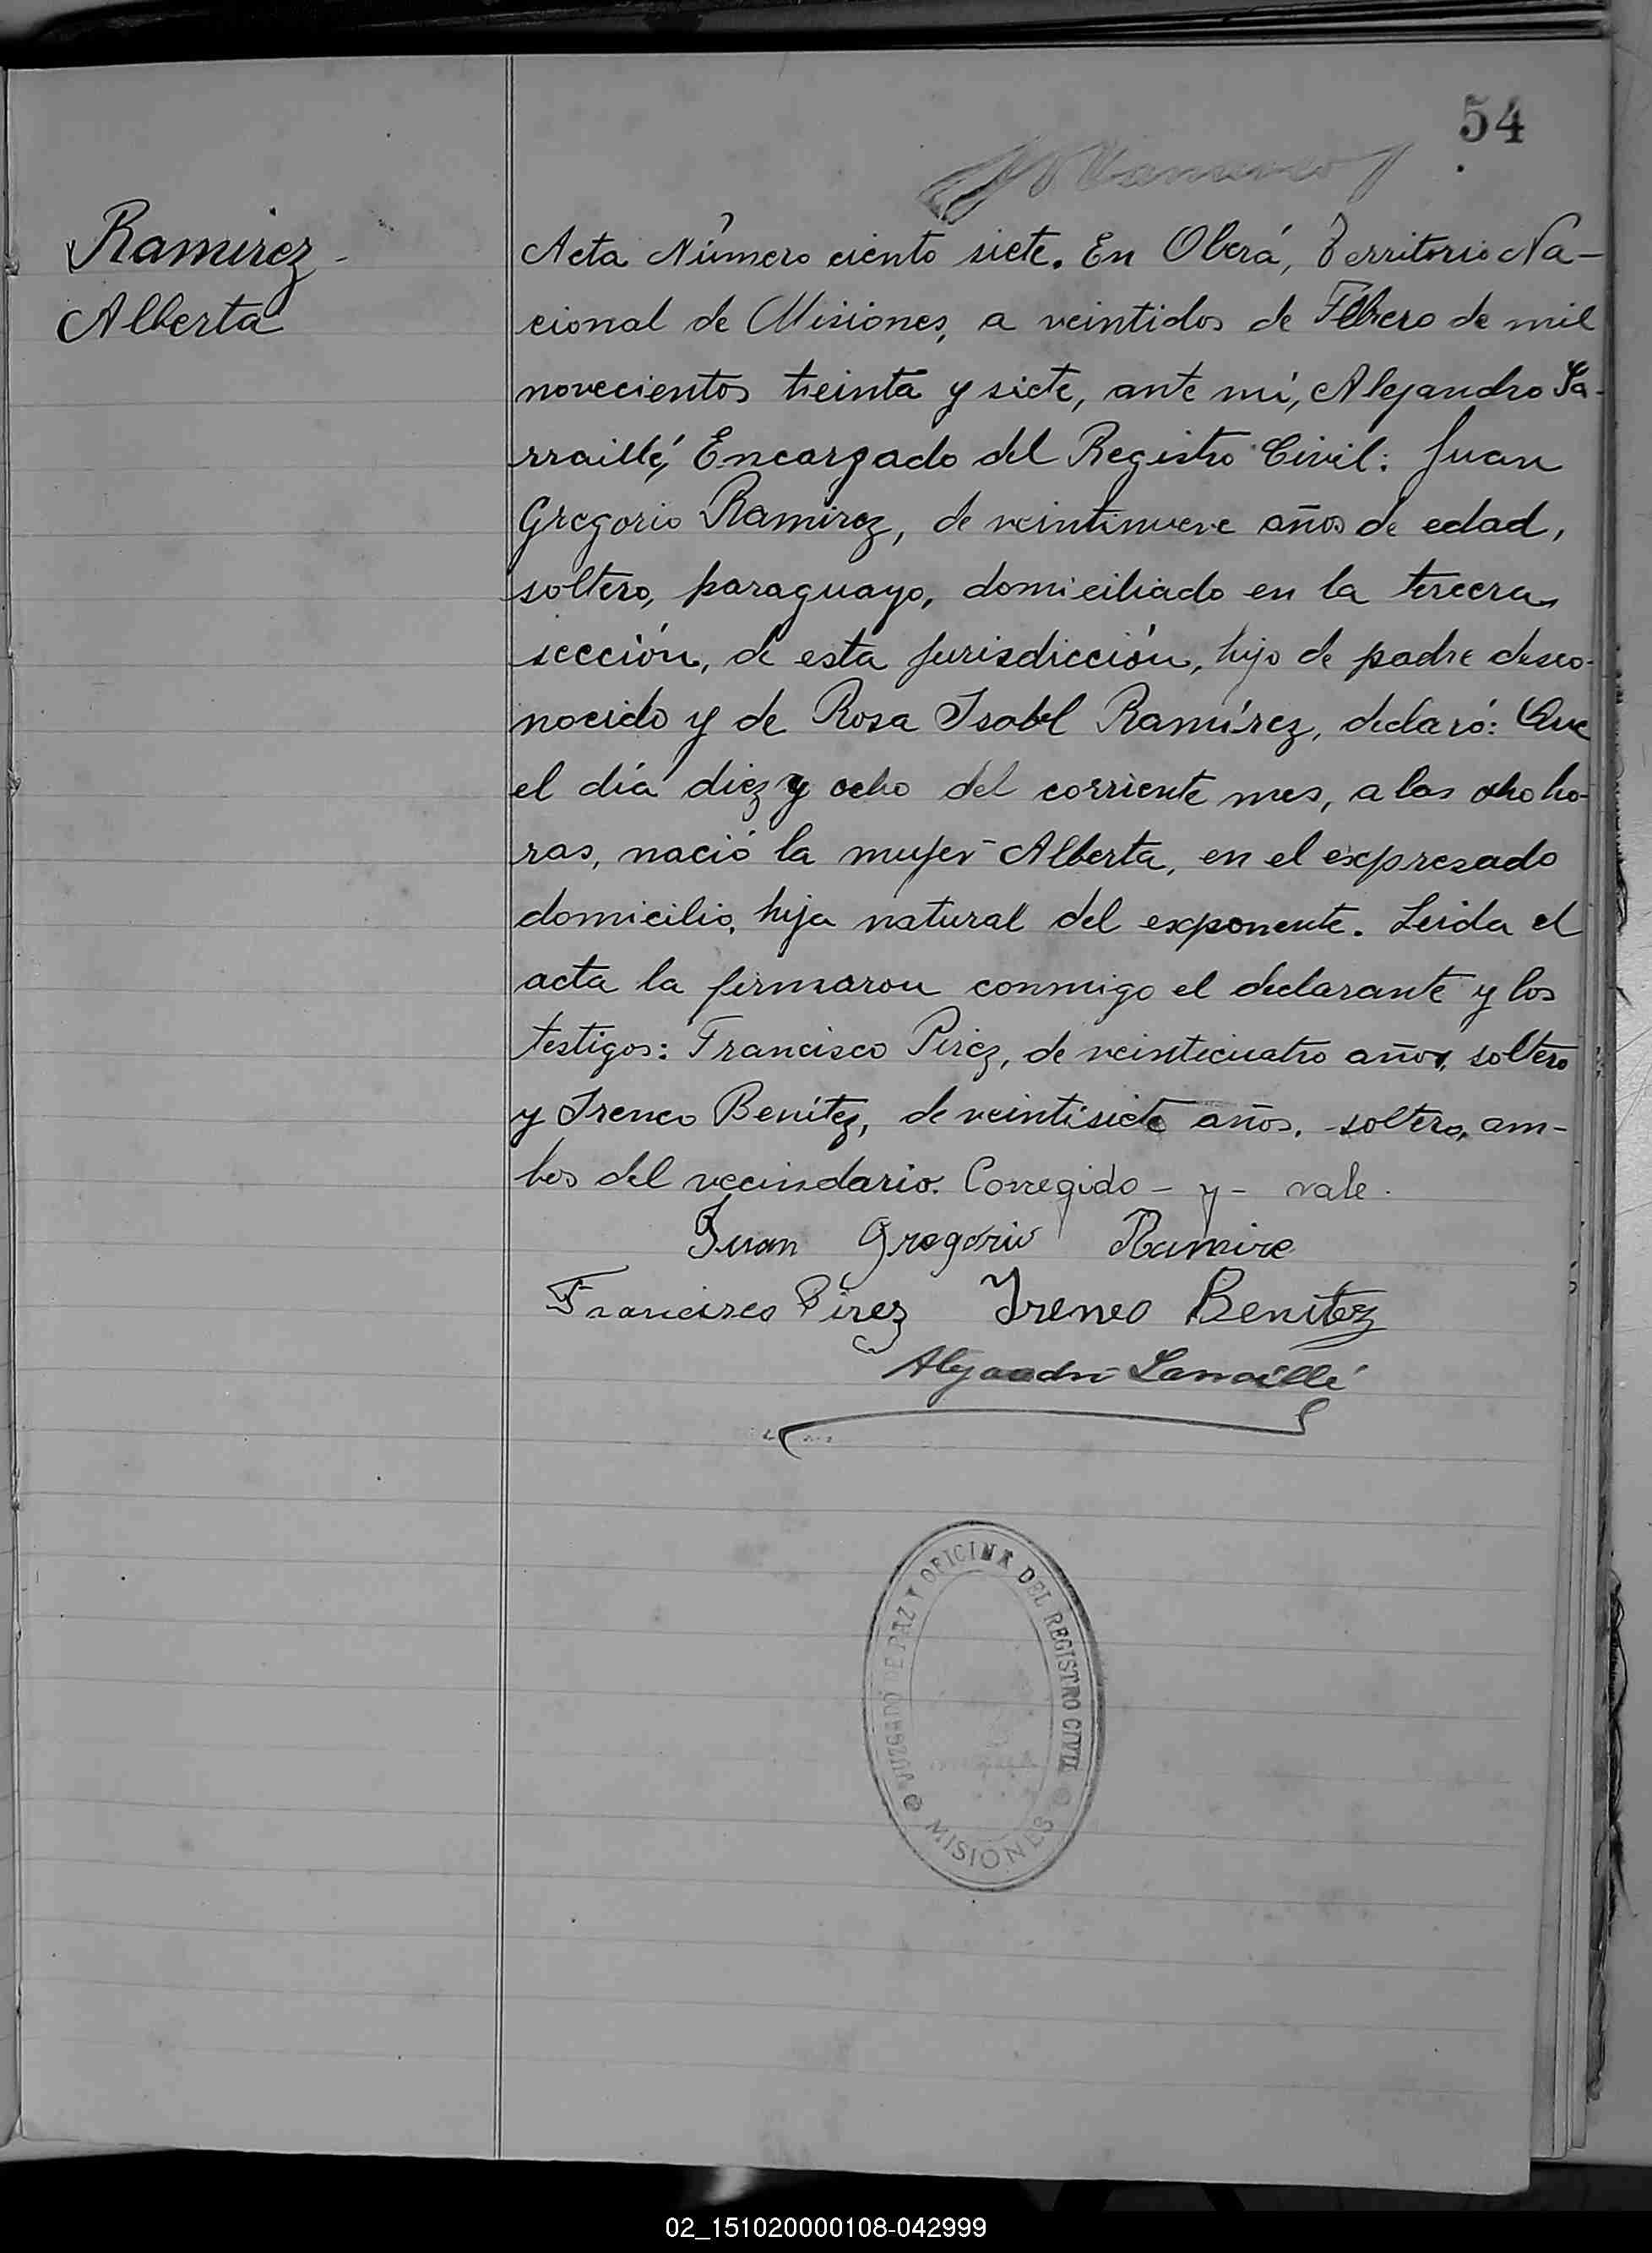 54
Ramirez
Alberta
Acta Número ciento siete. En Oberá, Territorio Na-
cional de Misiones, a veintidos de Febrero de mil
novecientos treinta y siete, ante mí, Alejandro La-
rraillé, Encargado del Registro Civil: Juan
Gregorio Ramirez, de veintinueve años de edad,
soltero, paraguayo, domiciliado en la tercera
sección, de esta jurisdicción, hijo de padre desco-
nocido y de Rosa Isabel Ramírez, declaró: Que
el día diez y ocho del corriente mes, a las ocho ho-
ras, nació la mujer Alberta, en el expresado
domicilio, hija natural del exponente. Leida el
acta la firmaron conmigo el declarante y los
testigos: Francisco Pirez, de veinticuatro años, soltero
y Ireneo Benítez, de veintisiete años, soltero, am-
bos del vecindario. Corregido - y - vale.
Juan Gregorio Ramire
Francisco Pirez Ireneo Benitez
Alejandro Larraillé
JUZGADO DE PAZ Y OFICINA DEL REGISTRO CIVIL
MISIONES
02_151020000108-042999